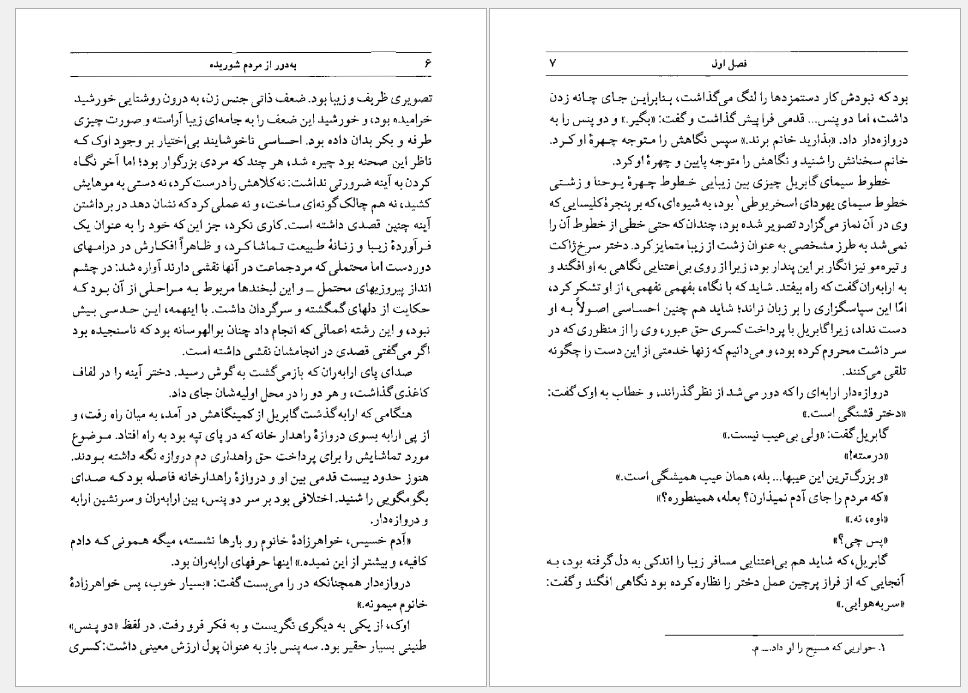 ۶
به‌دور از مردم شوریده
تصویری ظریف و زیبا بود. ضعف ذاتی جنس زن، به درون روشنایی خورشید
خرامیده بود، و خورشید این ضعف را به جامه‌ای زیبا آراسته و صورت چیزی
طرفه و بکر بدان داده بود. احساسی ناخوشایند بی‌اختیار بر وجود اوک که
ناظر این صحنه بود چیره شد، هر چند که مردی بزرگوار بود؛ اما آخر نگاه
کردن به آینه ضرورتی نداشت: نه کلاهش را درست کرد، نه دستی به موهایش
کشید، نه هم چالک گونه‌ای ساخت، و نه عملی کرد که نشان دهد در برداشتن
آینه چنین قصدی داشته است. کاری نکرد، جز این که خود را به عنوان یک
فرآوردهٔ زیبا و زنانهٔ طبیعت تماشا کرد، و ظاهراً افکارش در درامهای
دوردست اما محتملی که مردجماعت در آنها نقشی دارند آواره شد: در چشم
انداز پیروزیهای محتمل ـ و این لبخندها مربوط به مراحلی از آن بود که
حکایت از دلهای گمگشته و سرگردان داشت. با اینهمه، این حدسی بیش
نبود، و این رشته اعمالی که انجام داد چنان بوالهوسانه بود که ناسنجیده بود
اگر می‌گفتی قصدی در انجامشان نقشی داشته است.
صدای پای ارابه‌ران که بازمی‌گشت به گوش رسید. دختر آینه را در لفاف
کاغذی گذاشت، و هر دو را در محل اولیه‌شان جای داد.
هنگامی که ارابه گذشت گابریل از کمینگاهش در آمد، به میان راه رفت، و
از پی ارابه بسوی دروازهٔ راهدار خانه که در پای تپه بود به راه افتاد. موضوع
مورد تماشایش را برای پرداخت حق راهداری دم دروازه نگه داشته بودند.
هنوز حدود بیست قدمی بین او و دروازهٔ راهدارخانه فاصله بود که صدای
بگومگویی را شنید. اختلافی بود بر سر دو پنس، بین ارابه‌ران و سرنشین ارابه
و دروازه‌دار.
«آدم خسیس، خواهرزادهٔ خانوم رو بارها نشسته، میگه همونی که دادم
کافیه، و بیشتر از این نمیده.» اینها حرفهای ارابه‌ران بود.
دروازه‌دار همچنانکه در را می‌بست گفت: «بسیار خوب، پس خواهرزادهٔ
خانوم میمونه.»
اوک، از یکی به دیگری نگریست و به فکر فرو رفت. در لفظ «دو پنس»
طنینی بسیار حقیر بود. سه پنس باز به عنوان پول ارزش معینی داشت: کسری
فصل اول
۷
بود که نبودش کار دستمزدها را لنگ می‌گذاشت، بنابراین جای چانه زدن
داشت، اما دو پنس... قدمی فرا پیش گذاشت و گفت: «بگیر.» و دو پنس را به
دروازه‌دار داد. «بذارید خانم برند.» سپس نگاهش را متوجه چهرهٔ او کرد.
خانم سخنانش را شنید و نگاهش را متوجه پایین و چهرهٔ او کرد.
خطوط سیمای گابریل چیزی بین زیبایی خطوط چهرهٔ یوحنا و زشتی
خطوط سیمای یهودای اسخریوطی۱ بود، به شیوه‌ای، که بر پنجرهٔ کلیسایی که
وی در آن نماز می‌گزارد تصویر شده بود، چندان که حتی خطی از خطوط آن را
نمی‌شد به طرز مشخصی به عنوان زشت از زیبا متمایز کرد. دختر سرخ‌ژاکت
و تیره‌مو نیز انگار بر این پندار بود، زیرا از روی بی‌اعتنایی نگاهی به او افگند و
به ارابه‌ران گفت که راه بیفتد. شاید که با نگاه، بفهمی نفهمی، از او تشکر کرد،
امّا این سپاسگزاری را بر زبان نراند؛ شاید هم چنین احساسی اصولاً به او
دست نداد، زیرا گابریل با پرداخت کسری حق عبور، وی را از منظوری که در
سر داشت محروم کرده بود، و می‌دانیم که زنها خدمتی از این دست را چگونه
تلقی می‌کنند.
دروازه‌دار ارابه‌ای را که دور می‌شد از نظر گذراند، و خطاب به اوک گفت:
«دختر قشنگی است.»
گابریل گفت: «ولی بی‌عیب نیست.»
«درسته!»
«و بزرگ‌ترین این عیبها... بله، همان عیب همیشگی است.»
«که مردم را جای آدم نمیذارن؟ بعله، همینطوره؟»
«اوه، نه.»
«پس چی؟»
گابریل، که شاید هم بی‌اعتنایی مسافر زیبا را اندکی به دل گرفته بود، به
آنجایی که از فراز پرچین عمل دختر را نظاره کرده بود نگاهی افگند و گفت:
«سر به‌هوایی.»
۱. حواریی که مسیح را لو داد. ــ م.